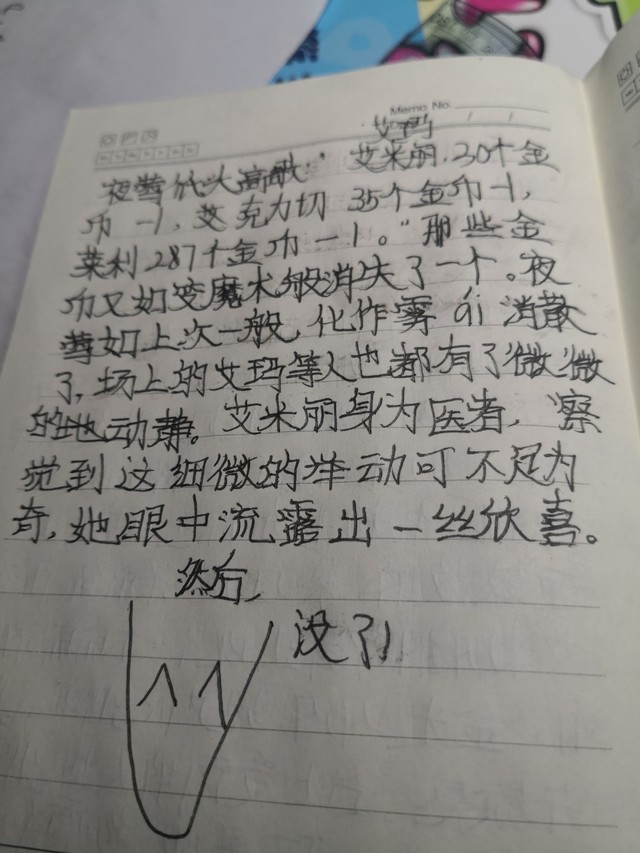 Memo No.
艾玛
夜莺依大高歌:"艾米丽.30个金
币-1,艾克力切 35个金币-1,
莱利287个金币-1。"那些金
币又如变魔术般消失了一个。夜
莺如上次一般,化作雾 消散
了,场上的艾玛等人也都有了微微
的地动静。艾米丽身为医者,察
觉到这细微的举动可不足为
奇,她眼中流露出一丝欣喜。
然后,
没了!